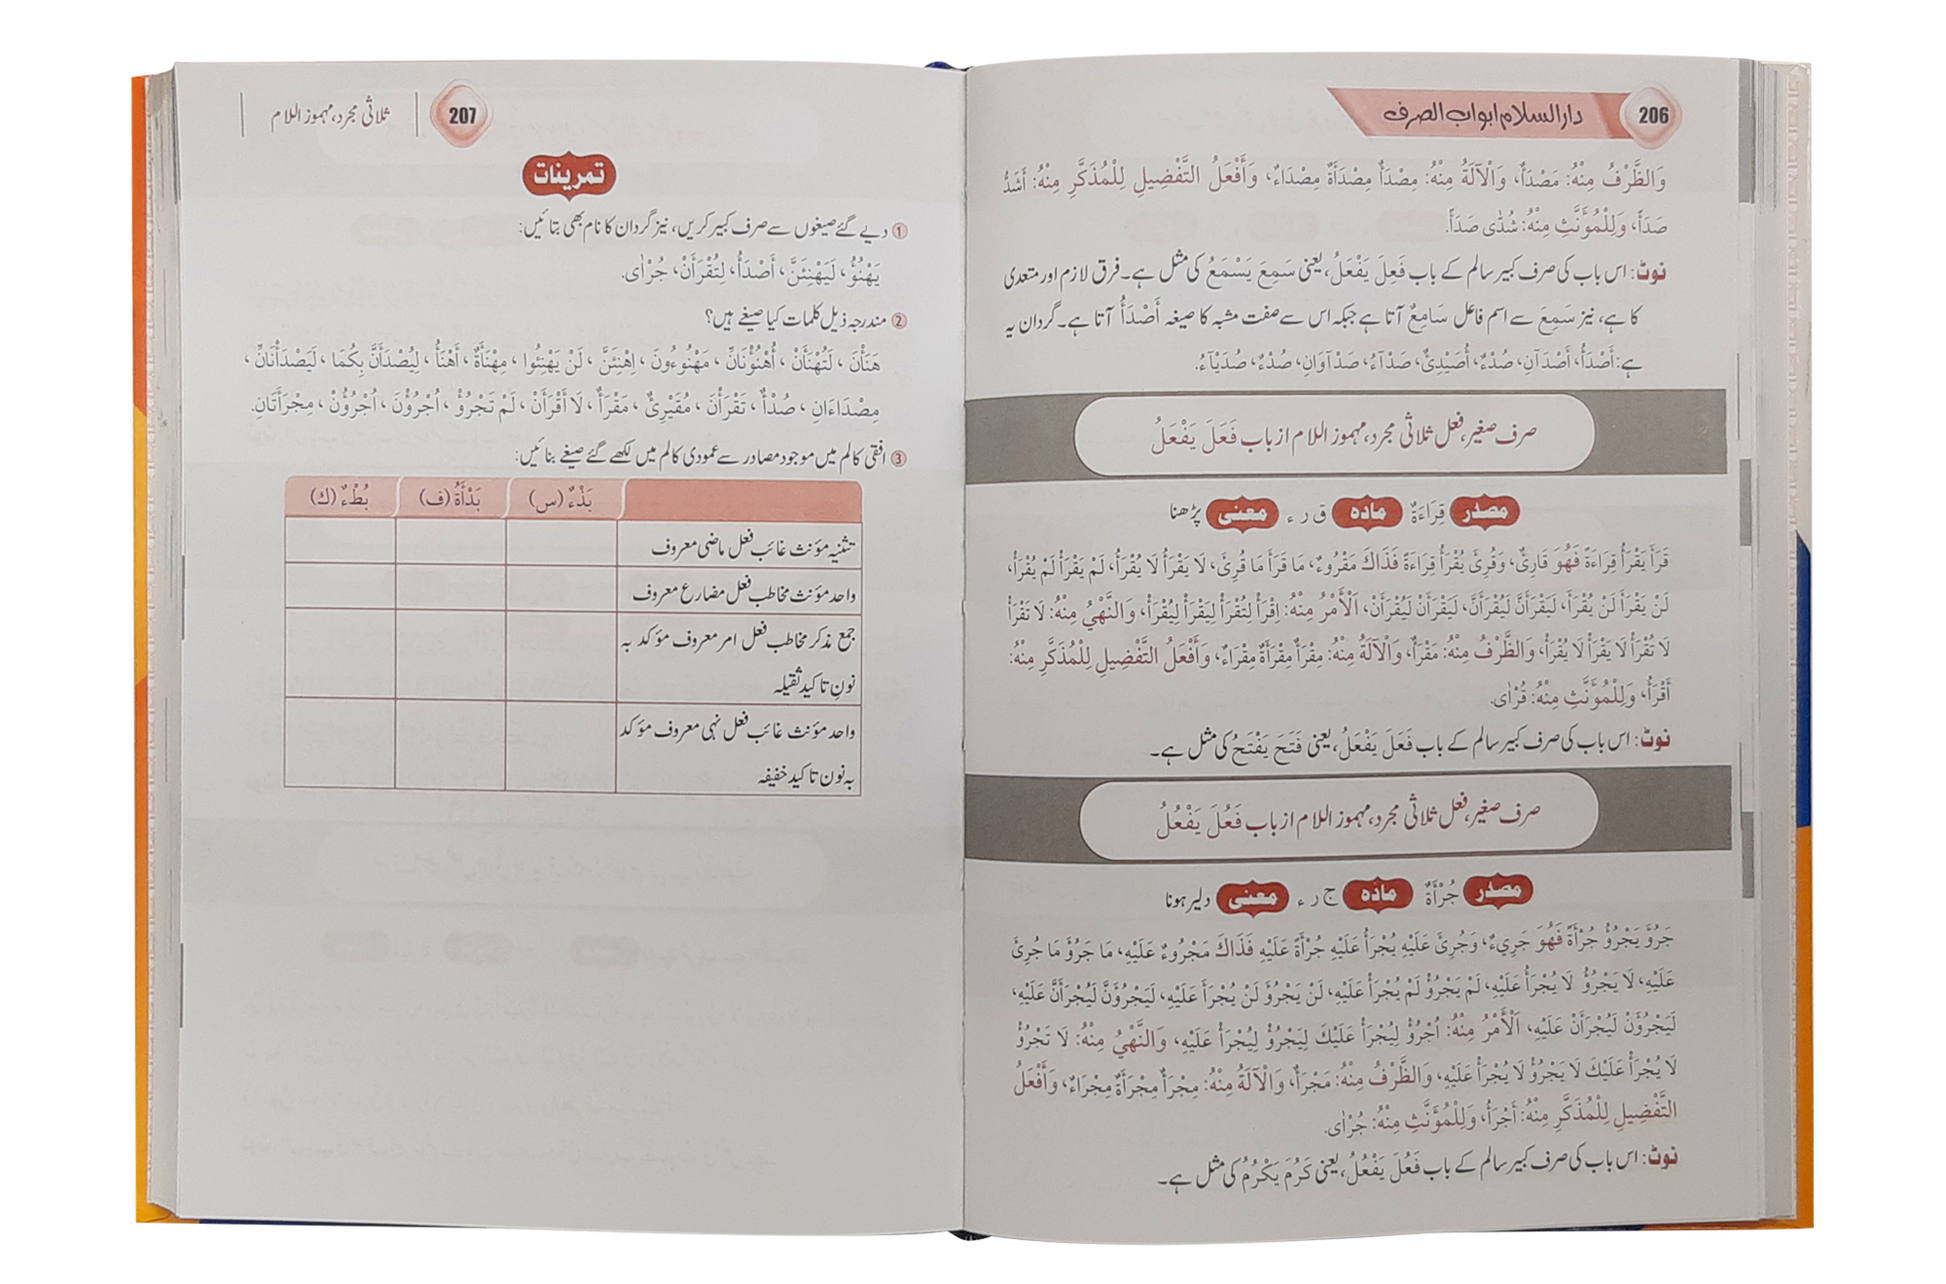 206 دارالسلام ابواب الصرف
وَالظَّرْفُ مِنْهُ: مَصْدَأٌ، وَالْآلَةُ مِنْهُ: مِصْدَأٌ مِصْدَأَةٌ مِصْدَاءٌ، وَأَفْعَلُ التَّفْضِيلِ لِلْمُذَكَّرِ مِنْهُ: أَشَدُّ
صَدَأً، وَلِلْمُؤَنَّثِ مِنْهُ: شُدّٰى صَدَأً.
نوٹ: اس باب کی صرف کبیر سالم کے باب فَعِلَ يَفْعَلُ، یعنی سَمِعَ يَسْمَعُ کی مثل ہے۔ فرق لازم اور متعدی
کا ہے، نیز سَمِعَ سے اسم فاعل سَامِعٌ آتا ہے جبکہ اس سے صفت مشبہ کا صیغہ أَصْدَأُ آتا ہے۔ گردان یہ
ہے: أَصْدَأُ، أَصْدَآنِ، صُدْءٌ، أُصَيْدِئٌ، صَدْآءُ، صَدْآوَانِ، صُدْءٌ، صُدَيْآءُ.
صرف صغیر، فعل ثلاثی مجرد، مہموز اللام از باب فَعَلَ يَفْعَلُ
مصدر قِرَاءَةٌ مادہ ق ر ء معنی پڑھنا
قَرَأَ يَقْرَأُ قِرَاءَةً فَهُوَ قَارِئٌ، وَقُرِئَ يُقْرَأُ قِرَاءَةً فَذَاكَ مَقْرُوءٌ، مَا قَرَأَ مَا قُرِئَ، لَا يَقْرَأُ لَا يُقْرَأُ، لَمْ يَقْرَأْ لَمْ يُقْرَأْ،
لَنْ يَقْرَأَ لَنْ يُقْرَأَ، لَيَقْرَأَنَّ لَيُقْرَأَنَّ، لَيَقْرَأَنْ لَيُقْرَأَنْ، اَلْأَمْرُ مِنْهُ: اِقْرَأْ لِتُقْرَأْ لِيَقْرَأْ لِيُقْرَأْ، وَالنَّهْيُ مِنْهُ: لَا تَقْرَأْ
لَا تُقْرَأْ لَا يَقْرَأْ لَا يُقْرَأْ، وَالظَّرْفُ مِنْهُ: مَقْرَأٌ، وَالْآلَةُ مِنْهُ: مِقْرَأٌ مِقْرَأَةٌ مِقْرَاءٌ، وَأَفْعَلُ التَّفْضِيلِ لِلْمُذَكَّرِ مِنْهُ:
أَقْرَأُ، وَلِلْمُؤَنَّثِ مِنْهُ: قُرْاٰى.
نوٹ: اس باب کی صرف کبیر سالم کے باب فَعَلَ يَفْعَلُ، یعنی فَتَحَ يَفْتَحُ کی مثل ہے۔
صرف صغیر، فعل ثلاثی مجرد، مہموز اللام از باب فَعُلَ يَفْعُلُ
مصدر جُرْأَةٌ مادہ ج ر ء معنی دلیر ہونا
جَرُؤَ يَجْرُؤُ جُرْأَةً فَهُوَ جَرِيءٌ، وَجُرِئَ عَلَيْهِ يُجْرَأُ عَلَيْهِ جُرْأَةً عَلَيْهِ فَذَاكَ مَجْرُوءٌ عَلَيْهِ، مَا جَرُؤَ مَا جُرِئَ
عَلَيْهِ، لَا يَجْرُؤُ لَا يُجْرَأُ عَلَيْهِ، لَمْ يَجْرُؤْ لَمْ يُجْرَأْ عَلَيْهِ، لَنْ يَجْرُؤَ لَنْ يُجْرَأَ عَلَيْهِ، لَيَجْرُؤَنَّ لَيُجْرَأَنَّ عَلَيْهِ،
لَيَجْرُؤَنْ لَيُجْرَأَنْ عَلَيْهِ، اَلْأَمْرُ مِنْهُ: اُجْرُؤْ لِيُجْرَأْ عَلَيْكَ لِيَجْرُؤْ لِيُجْرَأْ عَلَيْهِ، وَالنَّهْيُ مِنْهُ: لَا تَجْرُؤْ
لَا يُجْرَأْ عَلَيْكَ لَا يَجْرُؤْ لَا يُجْرَأْ عَلَيْهِ، وَالظَّرْفُ مِنْهُ: مَجْرَأٌ، وَالْآلَةُ مِنْهُ: مِجْرَأٌ مِجْرَأَةٌ مِجْرَاءٌ، وَأَفْعَلُ
التَّفْضِيلِ لِلْمُذَكَّرِ مِنْهُ: أَجْرَأُ، وَلِلْمُؤَنَّثِ مِنْهُ: جُرْاٰى.
نوٹ: اس باب کی صرف کبیر سالم کے باب فَعُلَ يَفْعُلُ، یعنی كَرُمَ يَكْرُمُ کی مثل ہے۔
207 ثلاثی مجرد، مہموز اللام
تمرینات
① دیے گئے صیغوں سے صرف کبیر کریں، نیز گردان کا نام بھی بتائیں:
يَهْنُؤُ، لَيَهْنِئَنَّ، أَصْدَأُ، لِتُقْرَأَنْ، جُرْاٰى.
② مندرجہ ذیل کلمات کیا صیغے ہیں؟
هَنَأْنَ، لَتُهْنَأَنْ، أُهْنُؤْنَانِّ، مَهْنُوءُونَ، اِهْنِئَنَّ، لَنْ يَهْنِئُوا، مِهْنَأَةٌ، أَهْنَأُ، لِيُصْدَأَنَّ بِكُمَا، لَيَصْدَأْنَانِّ،
مِصْدَاءَانِ، صُدْأٌ، تَقْرَأْنَ، مُقَيْرِئٌ، مَقْرَأٌ، لَا أَقْرَأَنْ، لَمْ تَجْرُؤْ، اُجْرُؤْنَ، اُجْرُؤْنْ، مِجْرَأَتَانِ.
③ افقی کالم میں موجود مصادر سے عمودی کالم میں لکھے گئے صیغے بنائیں:
بَذْءٌ (س) بَدْأَةٌ (ف) بُطْءٌ (ك)
تثنیہ مؤنث غائب فعل ماضی معروف
واحد مؤنث مخاطب فعل مضارع معروف
جمع مذکر مخاطب فعل امر معروف مؤکد بہ
نونِ تاکید ثقیلہ
واحد مؤنث غائب فعل نہی معروف مؤکد
بہ نون تاکید خفیفہ